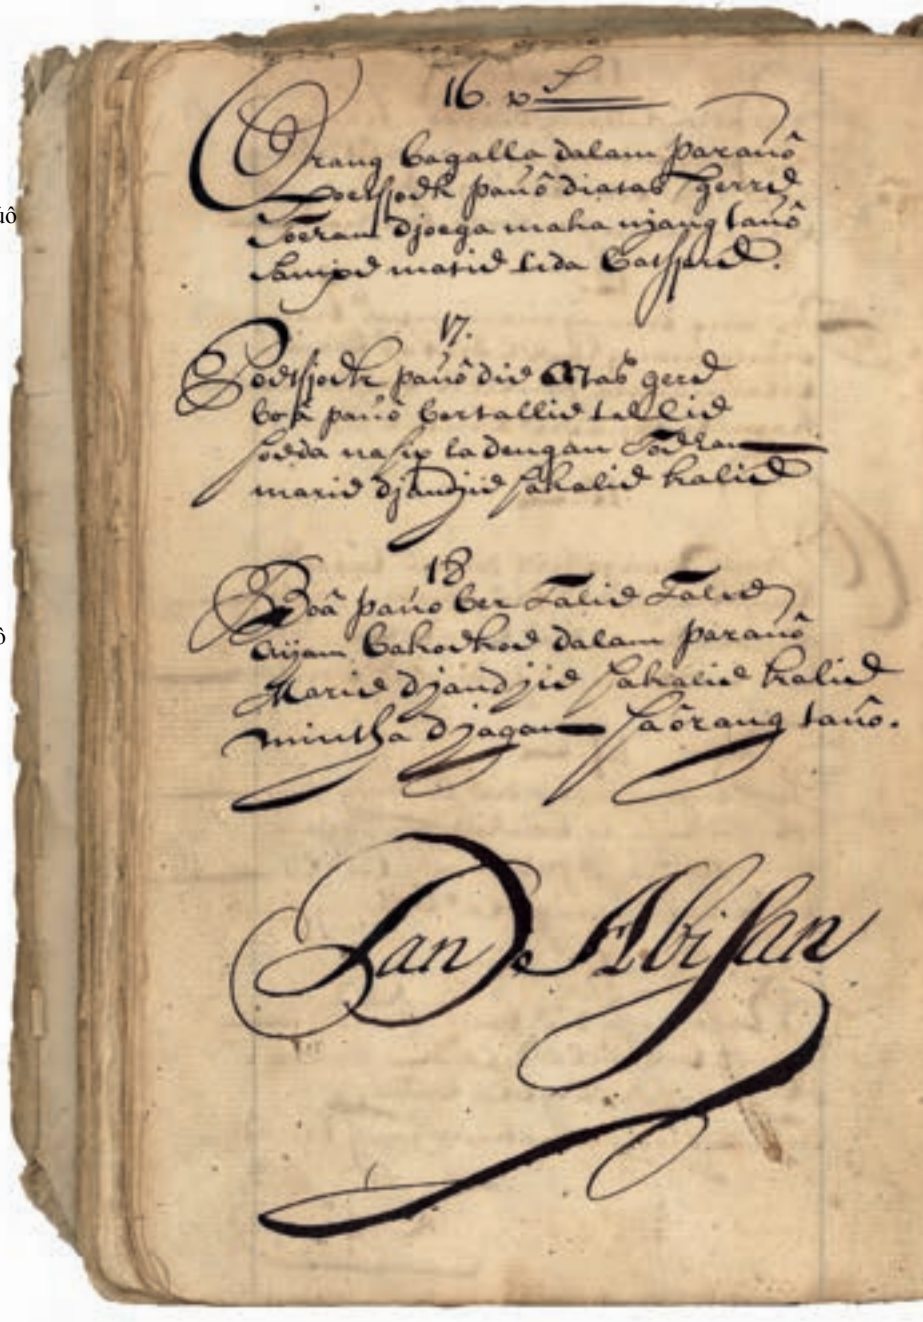 16. v S
Orang bagalla dalam parauô
Poetsjoek pauô diatas gerrie
Toeran djoega maka njang tauô
Sampe matie tida batsjerie.
17.
Poetsjoek pauô die Atas gerie
boâ pauô bertallie tallie
soeda nasip la dengan Toeran
marie djandjie sakalie kalie
18
Boâ pauo ber Talie Talie
Aijam bakoekoe dalam parauô
Marie djandjie sakalie kalie
mintha djagan saôrang tauô.
Dan De Abisan
uô
ô